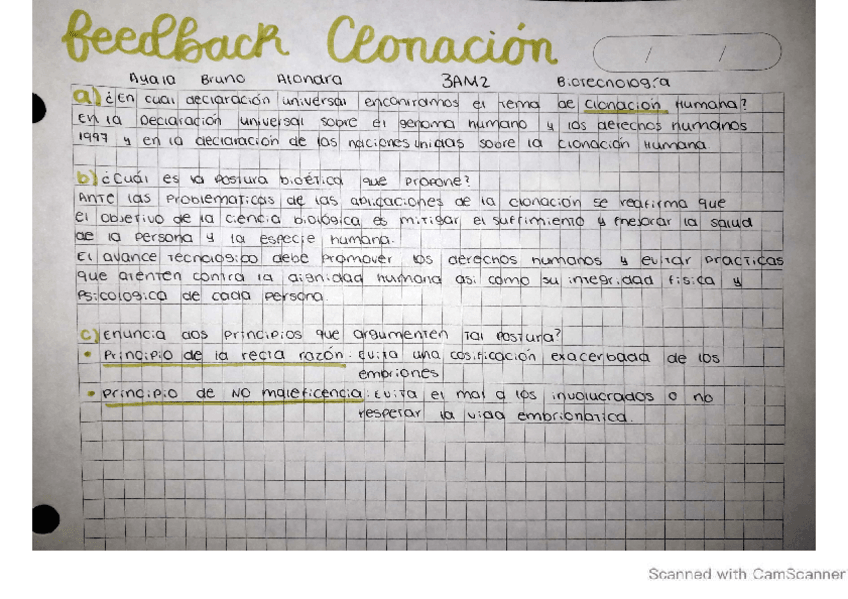 feedback Clonación
/ /
Ayala Bruno Atondra 3AM2 Biotecnología
a) ¿En cual declaración universal encontramos el tema de clonación Humana?
En la Declaración universal sobre el genoma humano y los derechos humanos
1997 y en la declaración de las naciones unidas sobre la clonación Humana
b) ¿Cuál es la postura bioética que propone?
Ante las Problematicas de las aplicaciones de la clonación se reafirma que
el objetivo de la ciencia biológica es mitigar el sufrimiento y mejorar la salud
de la persona y la especie humana.
El avance tecnológico debe promover los derechos humanos y evitar practicas
que atenten contra la dignidad humana asi como su integridad fisica y
Psicologica de cada persona.
c) Enuncia dos principios que argumenten tal postura?
• Principio de la recta razón. Evita una cosificación exacerbada de los
embriones
• Principio de NO maleficencia: Evita el mal a los involucrados o no
respetar la vida embrionatica.
Scanned with CamScanner